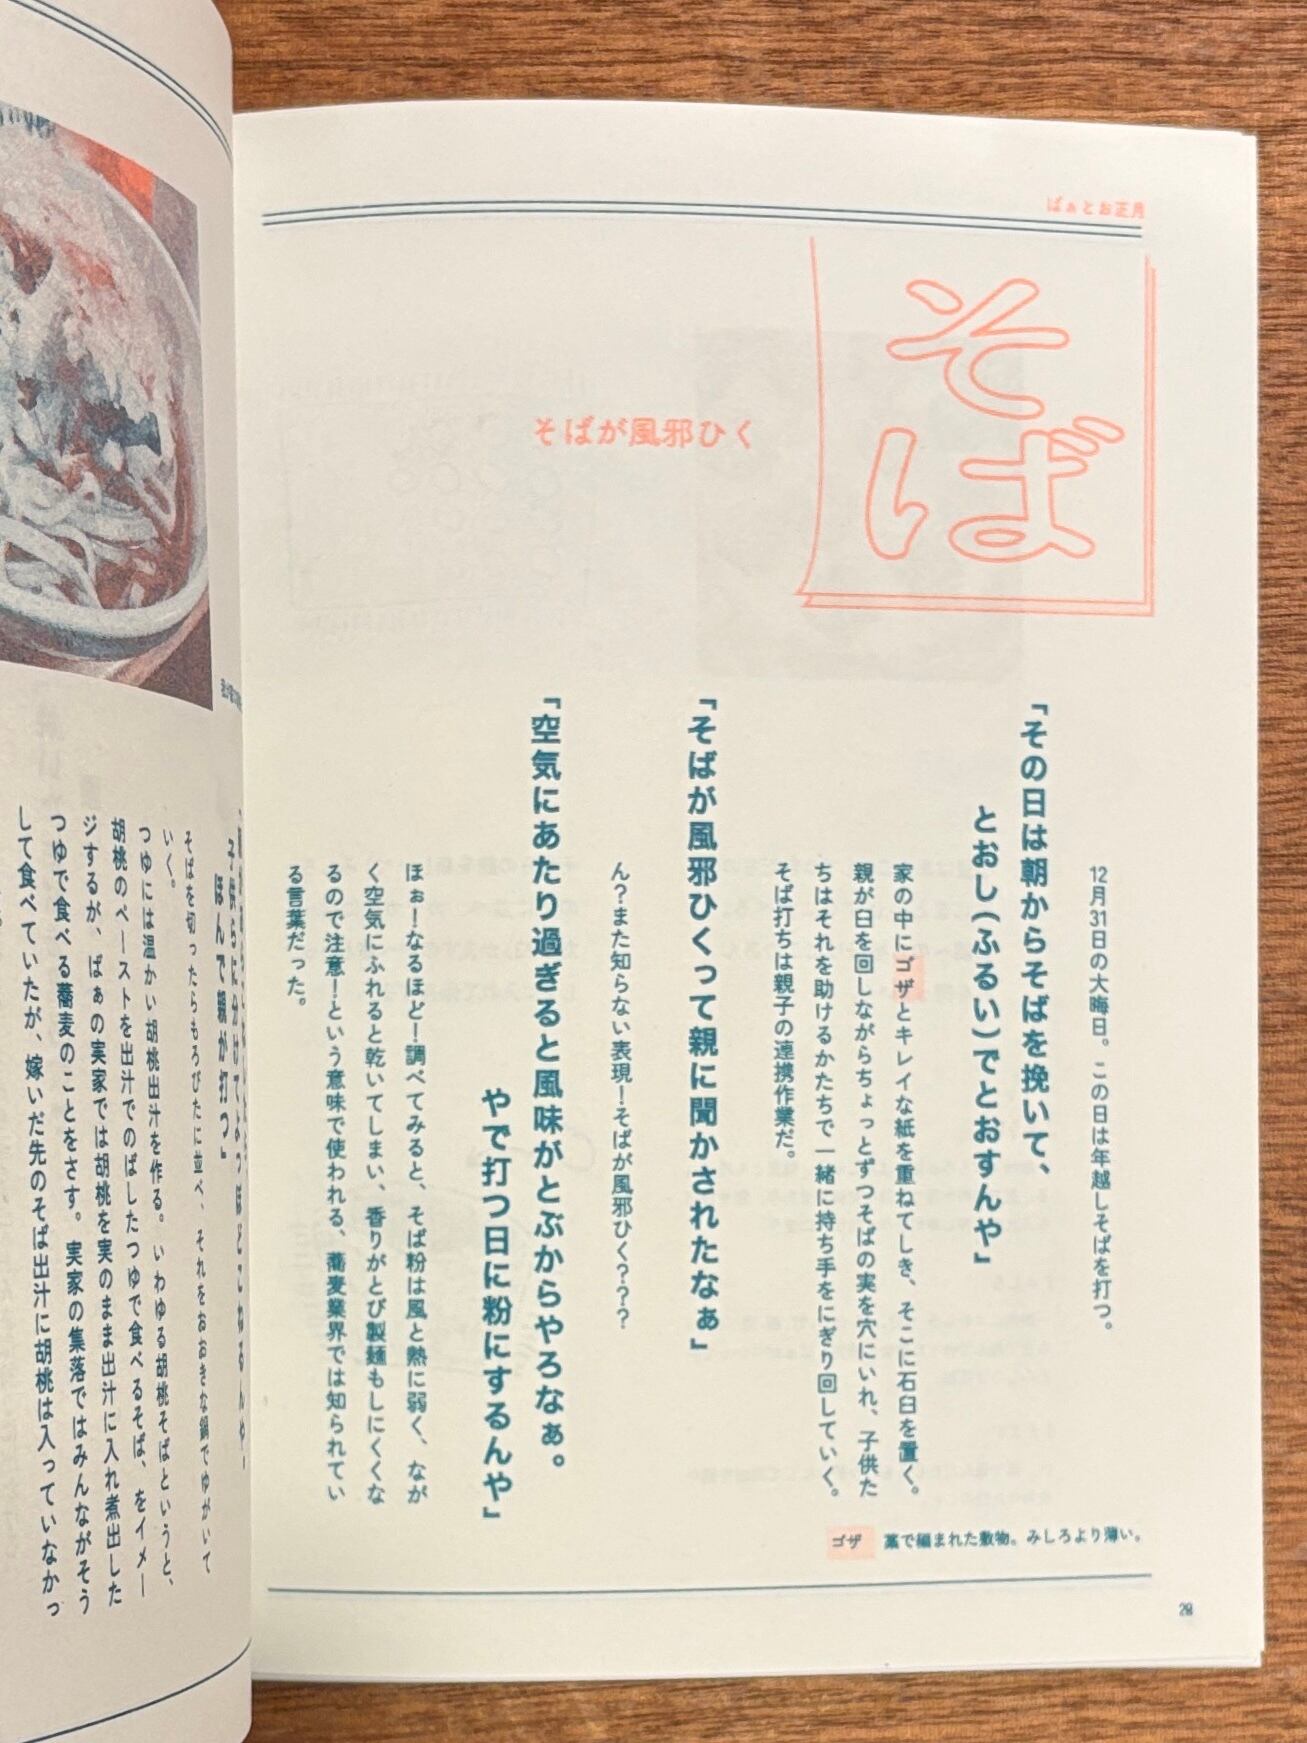 ばぁとお正月
そば
そばが風邪ひく
12月31日の大晦日。この日は年越しそばを打つ。
「その日は朝からそばを挽いて、
とおし(ふるい)でとおすんや」
家の中にゴザとキレイな紙を重ねてしき、そこに石臼を置く。
親が臼を回しながらちょっとずつそばの実を穴にいれ、子供た
ちはそれを助けるかたちで一緒に持ち手をにぎり回していく。
そば打ちは親子の連携作業だ。
「そばが風邪ひくって親に聞かされたなぁ」
ん?また知らない表現!そばが風邪ひく???
「空気にあたり過ぎると風味がとぶからやろなぁ。
やで打つ日に粉にするんや」
ほぉ!なるほど!調べてみると、そば粉は風と熱に弱く、なが
く空気にふれると乾いてしまい、香りがとび製麺もしにくくな
るので注意!という意味で使われる、蕎麦業界では知られてい
る言葉だった。
ゴザ 藁で編まれた敷物。みしろより薄い。
28
子供らに分けてよっぽどこねるんや。
ほんで親が打つ」
そばを切ったらもろびたに並べ、それをおおきな鍋でゆがいて
いく。
つゆには温かい胡桃出汁を作る。いわゆる胡桃そばというと、
胡桃のペーストを出汁でのばしたつゆで食べるそば、をイメー
ジするが、ばぁの実家では胡桃を実のまま出汁に入れ煮出した
つゆで食べる蕎麦のことをさす。実家の集落ではみんながそう
して食べていたが、嫁いだ先のそば出汁に胡桃は入っていなかっ